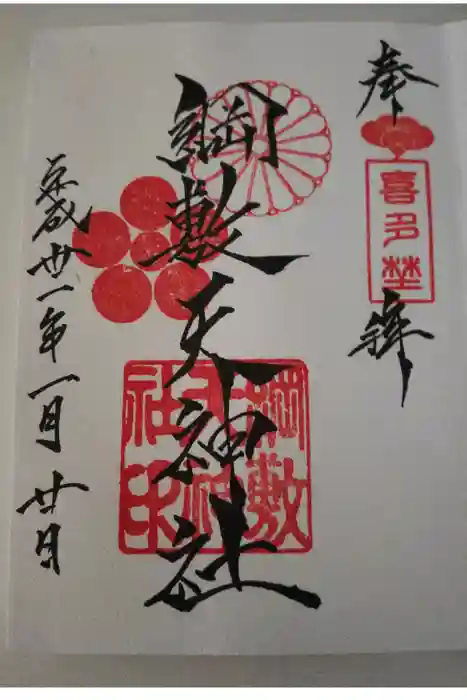 奉拜
喜多埜
綱敷天神社
綱敷天神社印
平成丗一年一月廿日